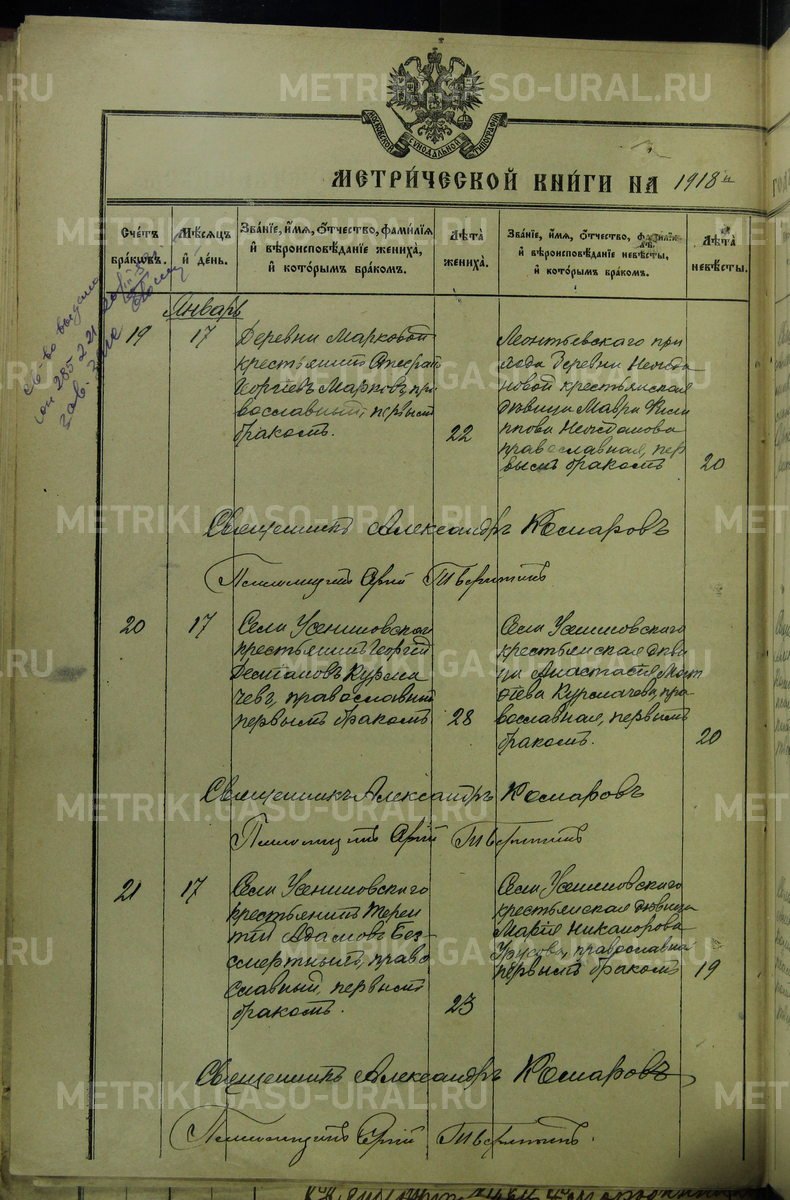 METRIKI.GASO-URAL.RU
МОСКОВСКОЙ СѴНОДАЛЬНОЙ ТИПОГРАФІИ
МЕТРИ́ЧЕСКОЙ КНИ́ГИ НА 1918й
Сче́тъ бра́ковъ.
Мѣ́сяцъ и҆ де́нь.
Зва́ніе, и҆́мя, ѻ҆́тчество, фами́лія
и҆ вѣроисповѣ́даніе жениха̀,
и҆ кото́рымъ бра́комъ.
Лѣ́та жениха̀.
Зва́ніе, и҆́мя, ѻ҆́тчество, фами́лія
и҆ вѣроисповѣ́даніе невѣ́сты,
и҆ кото́рымъ бра́комъ.
Лѣ́та невѣ́сты.
Св-во выдано
Январь
19
17
Деревни Марковой
крестьянинъ
Георгіевъ Марковъ, пра
вославный, первымъ
бракомъ.
22
Леонтьевскаго при
хода Деревни Нежда
новой крестьянская
дѣвица Мавра Фили
ппова Нежданова
православная, пер
вымъ бракомъ
20
Священникъ Александръ Комаровъ
Псаломщикъ Тверитинъ
20
17
Села Усениновскаго
крестьянинъ Георгій
Курма
чевъ, православный
первымъ бракомъ
28
Села Усениновскаго
крестьянская дѣви
ца Анастасія Мат
ѳеева Курмачева, пра
вославная, первымъ
бракомъ.
20
Священникъ Александръ Комаровъ
Псаломщикъ Тверитинъ
21
17
Села Усениновскаго
крестьянинъ Терен
тій Адамовъ Без
смертный, право
славный, первымъ
бракомъ.
23
Села Усениновскаго
крестьянская дѣвица
Марія Никанорова
Урусова, православная
первымъ бракомъ
19
Священникъ Александръ Комаровъ
Псаломщикъ Тверитинъ.